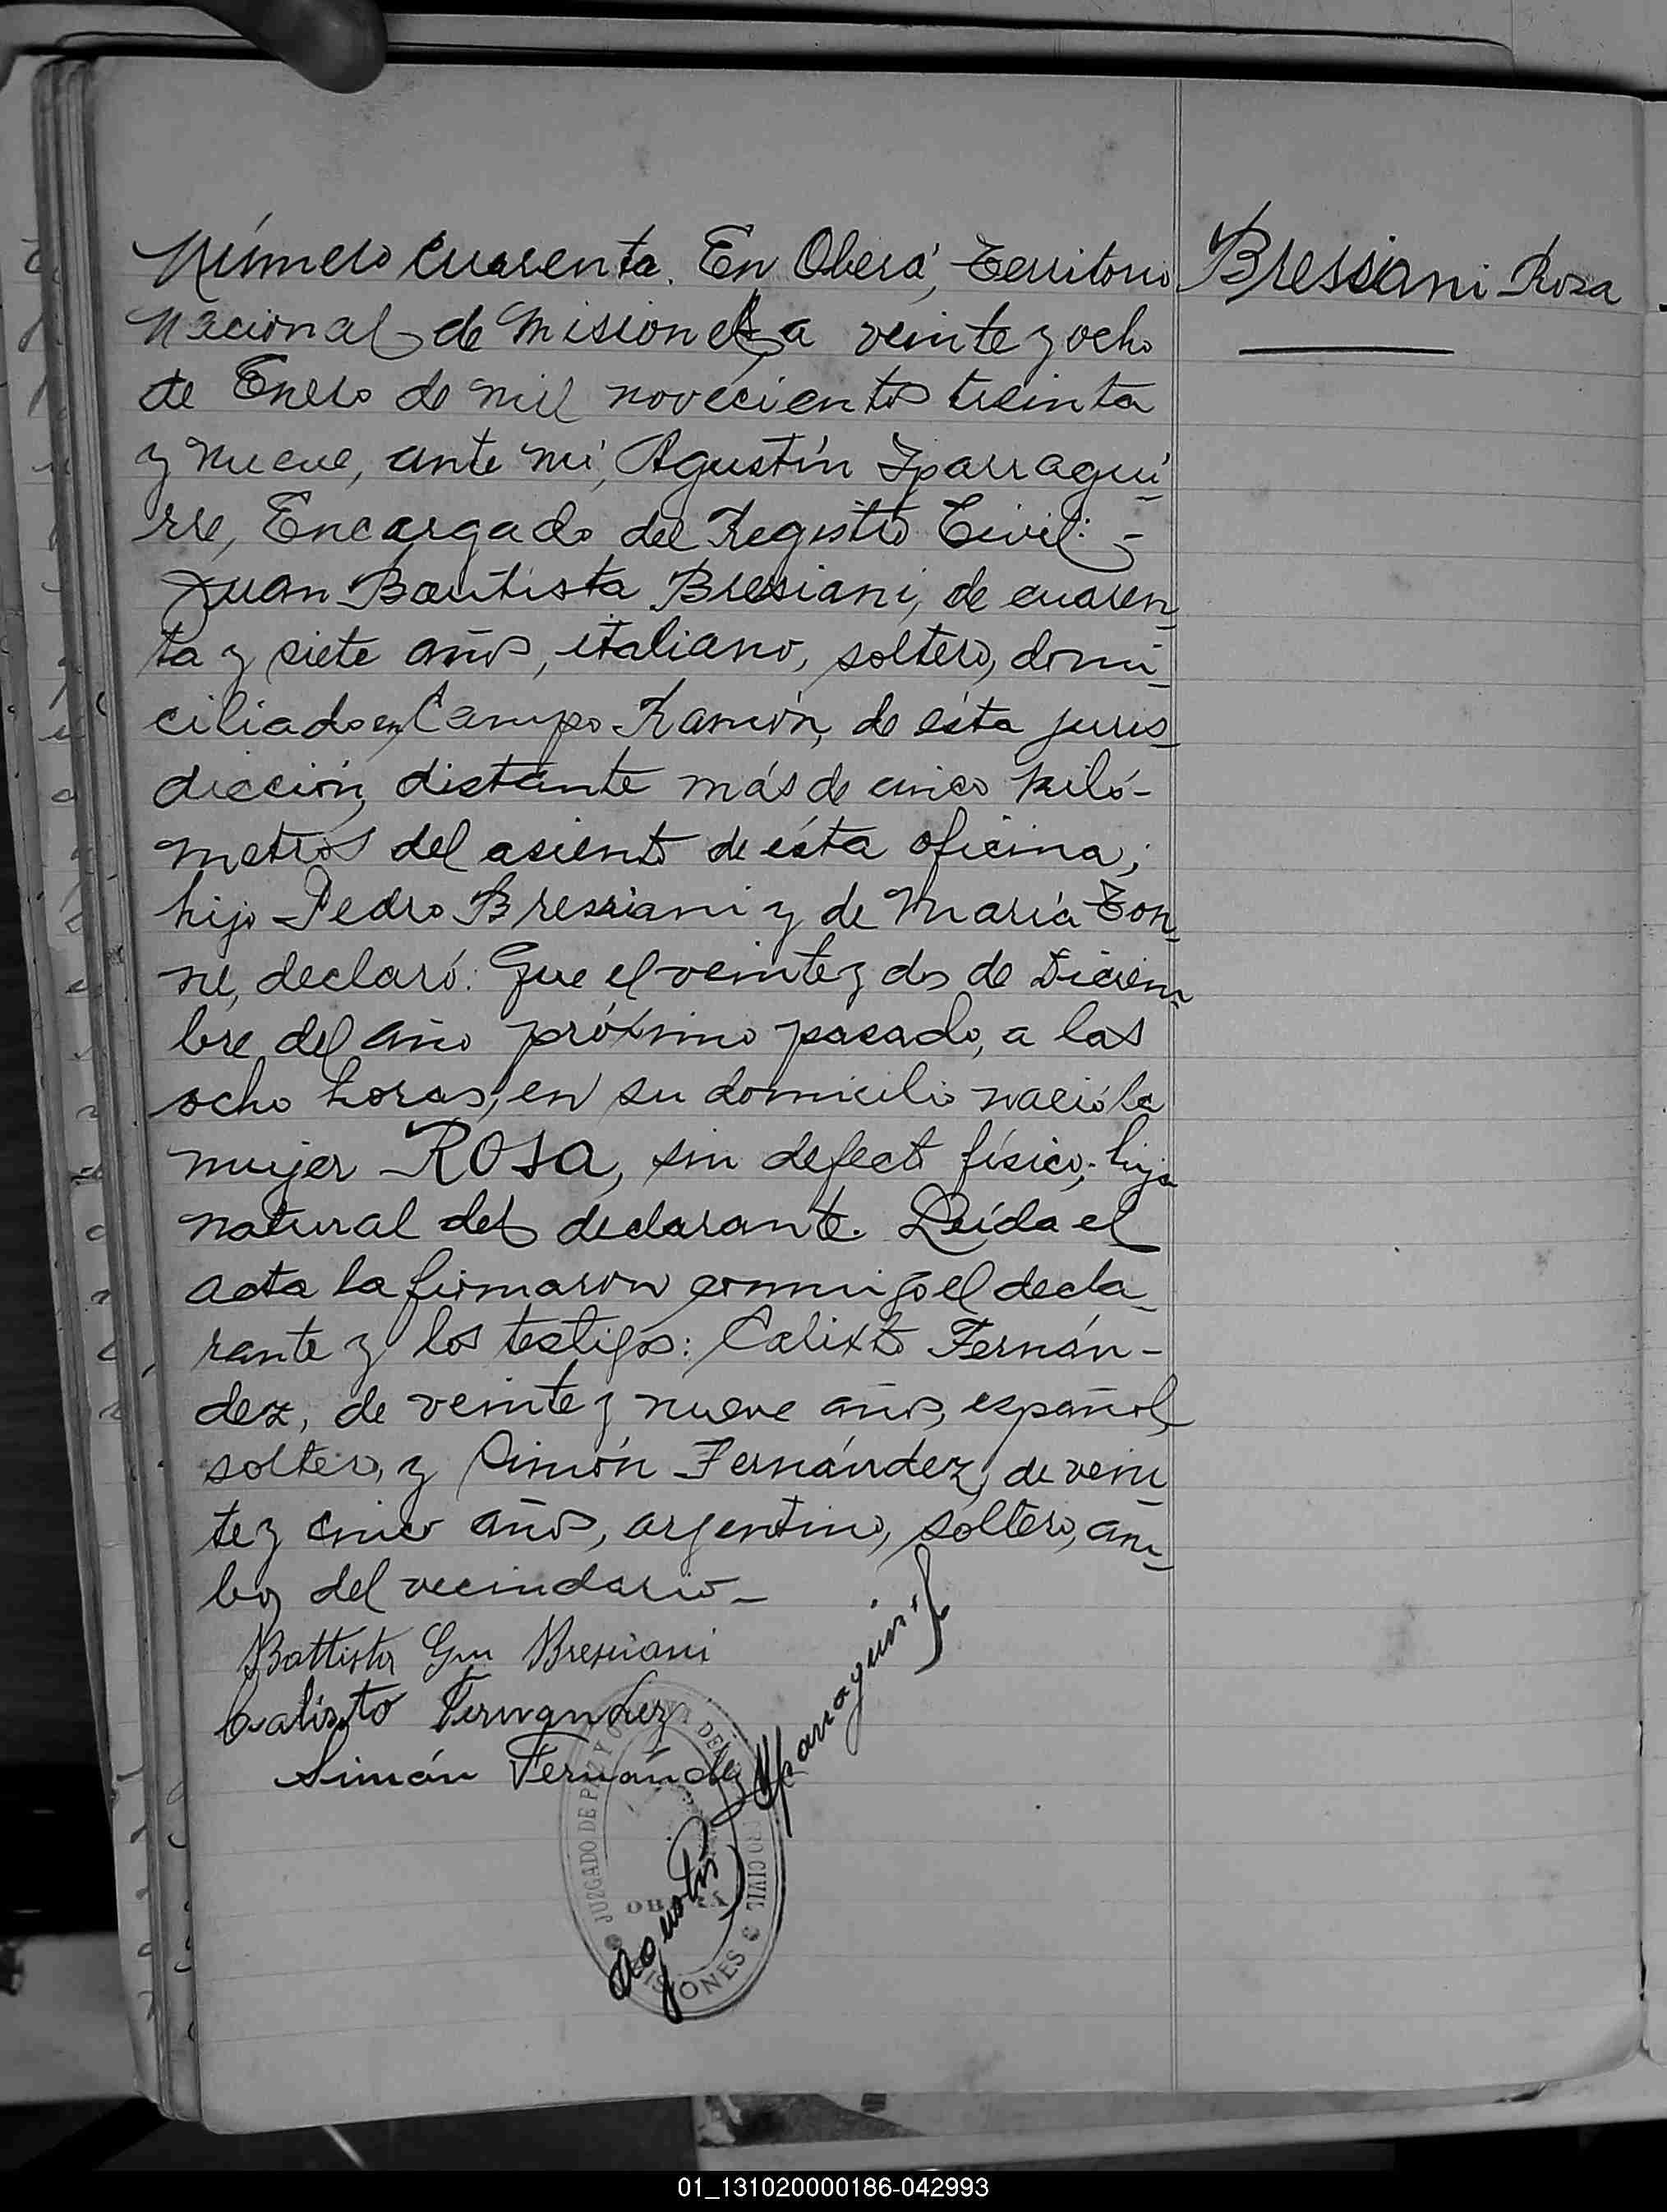 Número cuarenta. En Oberá, Territorio
Nacional de Misiones, a veinte y ocho
de Enero de mil novecientos treinta
y nueve, ante mí, Agustín Iparragui-
rre, Encargado del Registro Civil: -
Juan Bautista Bressiani, de cuaren-
ta y siete años, italiano, soltero, domi-
ciliado en Campo Ramón, de ésta juris-
dicción, distante más de cinco kiló-
metros del asiento de ésta oficina;
hijo Pedro Bressiani y de María Ton-
ne, declaró: Que el veinte y dos de Diciem-
bre del año próximo pasado, a las
ocho horas, en su domicilio nació la
mujer ROSA, sin defecto físico; hija
natural del declarante. Leída el
acta la firmaron conmigo el decla-
rante y los testigos: Calixto Fernán-
dez, de veinte y nueve años, español,
soltero, y Simón Fernández, de vein-
te y cinco años, argentino, soltero, am-
bos del vecindario -
Bressiani Rosa
Battista Gio Bresciani
Calixto Fernandez
Simón Fernández
Agustín Iparraguirre
JUZGADO DE PAZ Y CIVIL
OBERA
MISIONES
01_131020000186-042993